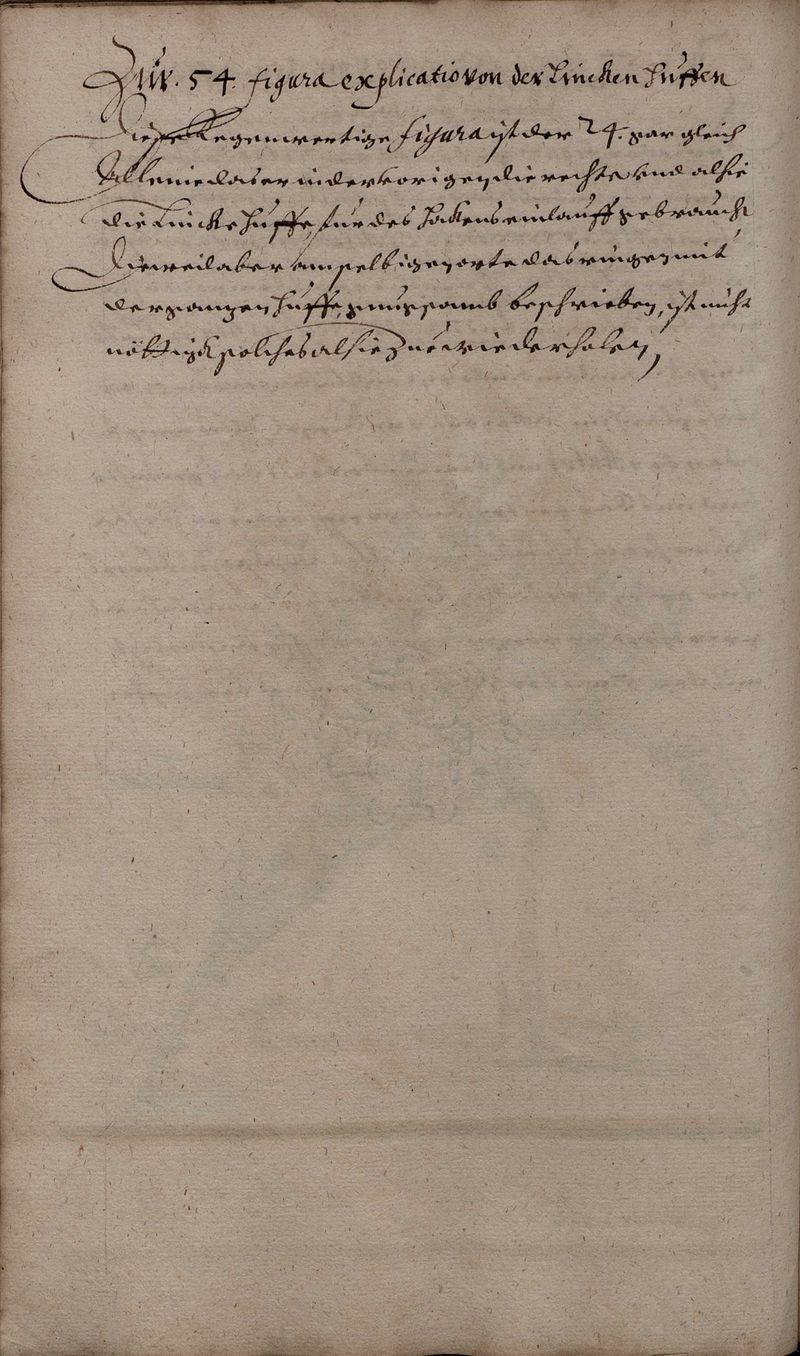 Zur. 54. figura explicatio von der Lincken Huffen
Diese kegenwertige figura ist der 24. gar gleich
Alleine das er in der vorigen die rechte und alhie
die Lincke Huffe, fur des Hakens einlauff gebraucht
Dieweil aber am selbigen orte das ringen mit
der gangen Huffe, beschrieben, ist nicht
nöttigk solches alhie zu wiederholen,